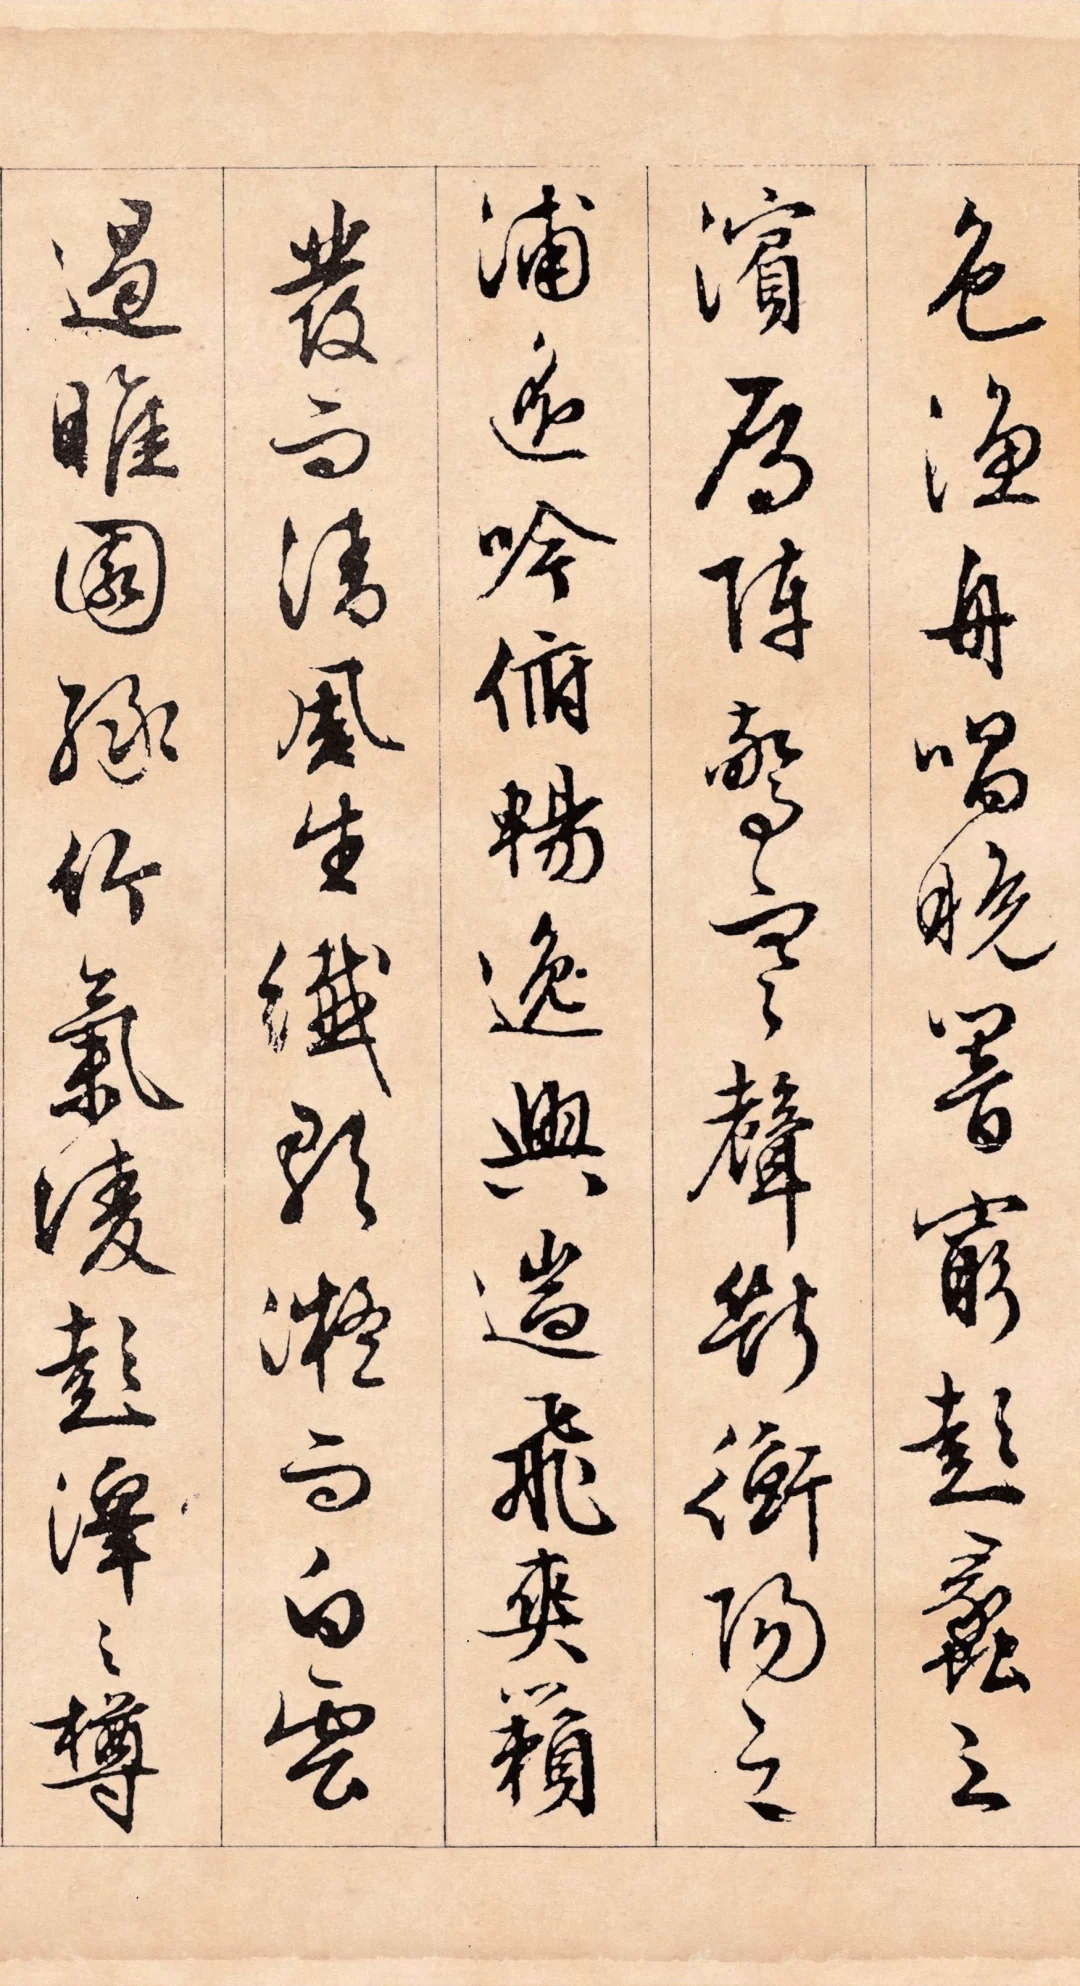 色漁舟唱晚響窮彭蠡之
濱雁陣驚寒聲斷衡陽之
浦遥吟俯暢逸興遄飛爽籟
發而清風生纖歌凝而白雲
遏睢園綠竹氣淩彭澤之樽